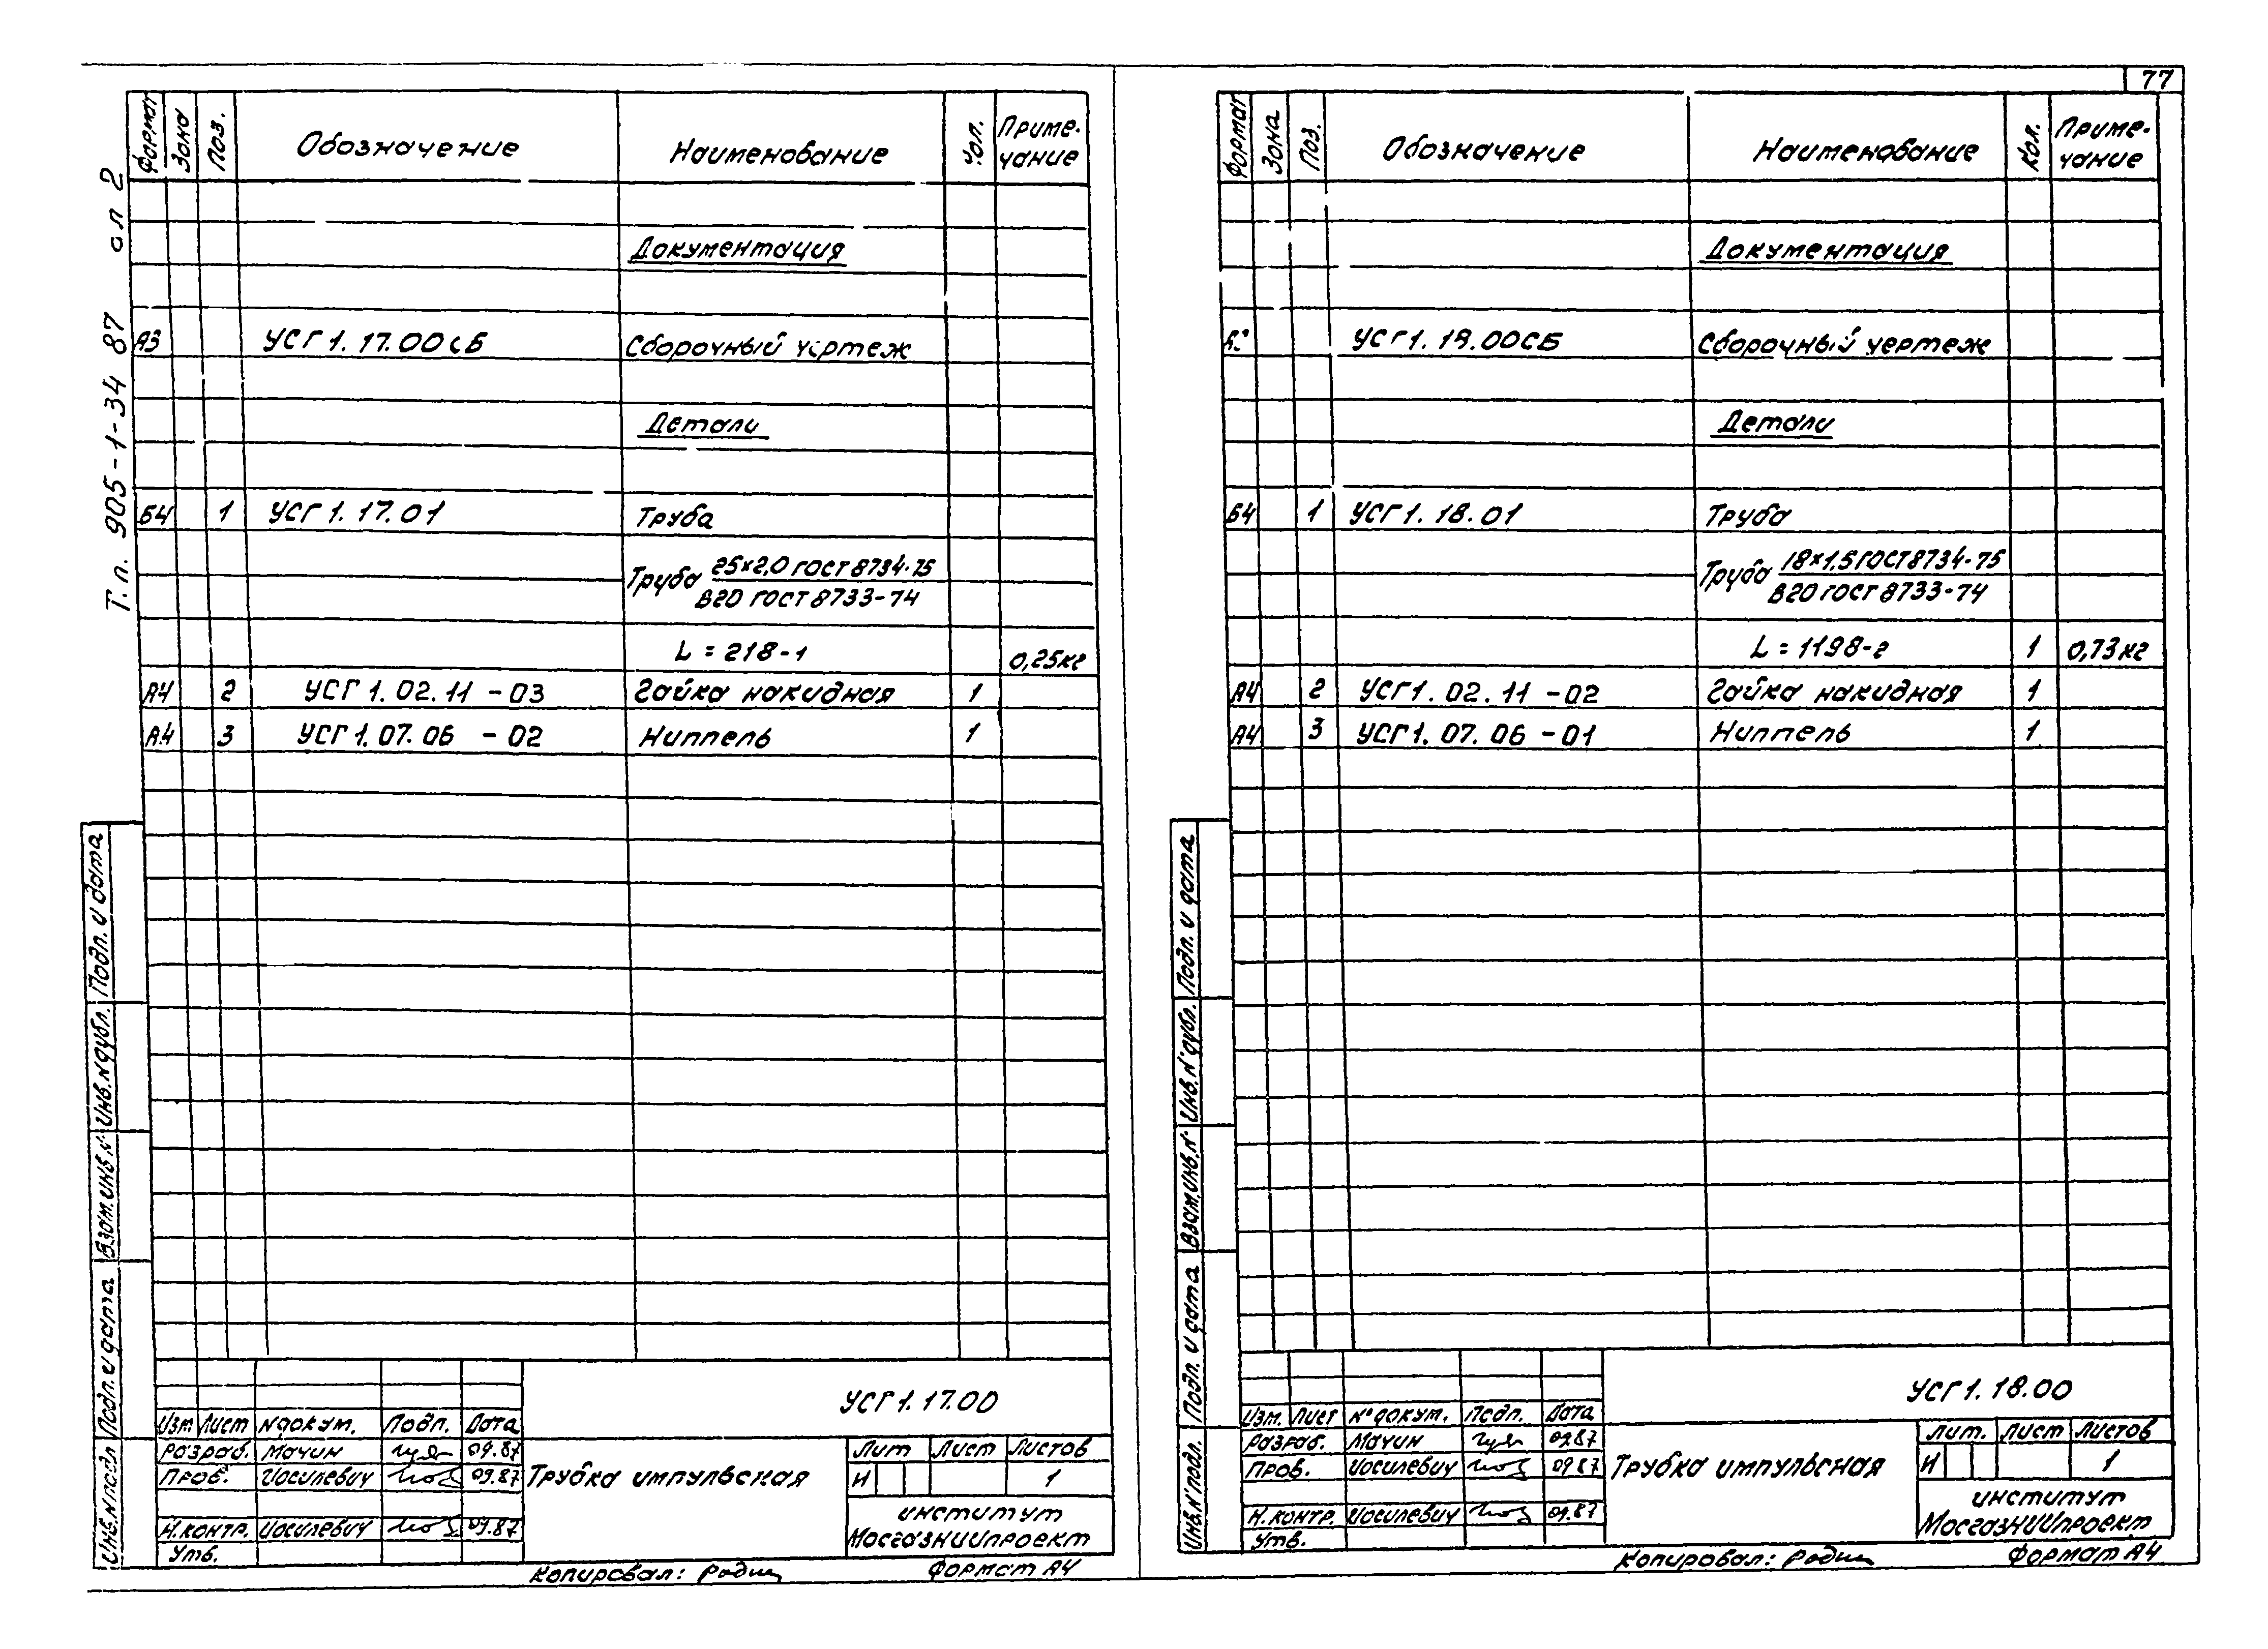 77
Т.п. 905-1-34 87 ол 2
Формат Зона Поз. Обозначение Наименование Кол. Приме-
чание
Документация
А3 УСГ 1.17.00СБ Сборочный чертеж
Детали
Б4 1 УСГ 1.17.01 Труба
Труба 25×2,0 ГОСТ 8734-75
В20 ГОСТ 8733-74
L = 218-1 0,25кг
А4 2 УСГ 1.02.11 -03 Гайка накидная 1
А4 3 УСГ 1.07.06 -02 Ниппель 1
Подп. и дата
Инв.N дубл.
Взам.инв.N
Подп. и дата
Инв.N подл
УСГ 1.17.00
Изм Лист N докум. Подп. Дата
Разраб. Мачин 09.87
Пров. Иосилевич 09.87
Н.контр. Иосилевич 09.87
Утв.
Трубка импульсная
Лит Лист Листов
И 1
институт
МосгазНИИпроект
Копировал:
Формат А4
Формат Зона Поз. Обозначение Наименование Кол. Приме-
чание
Документация
УСГ 1.18.00СБ Сборочный чертеж
Детали
Б4 1 УСГ 1.18.01 Труба
Труба 18×1.5 ГОСТ 8734-75
В20 ГОСТ 8733-74
L = 1198-2 1 0,73кг
А4 2 УСГ 1.02.11 -02 Гайка накидная 1
А4 3 УСГ 1.07.06 -01 Ниппель 1
Подп. и дата
Инв.N° дубл.
Взам.инв.N°
Подп. и дата
Инв.N° подл.
УСГ 1.18.00
Изм. Лист N° докум. Подп. Дата
Разраб. Мачин 09.87
Пров. Иосилевич 09.87
Н.контр. Иосилевич 09.87
Утв.
Трубка импульсная
Лит. Лист Листов
И 1
институт
МосгазНИИпроект
Копировал:
Формат А4